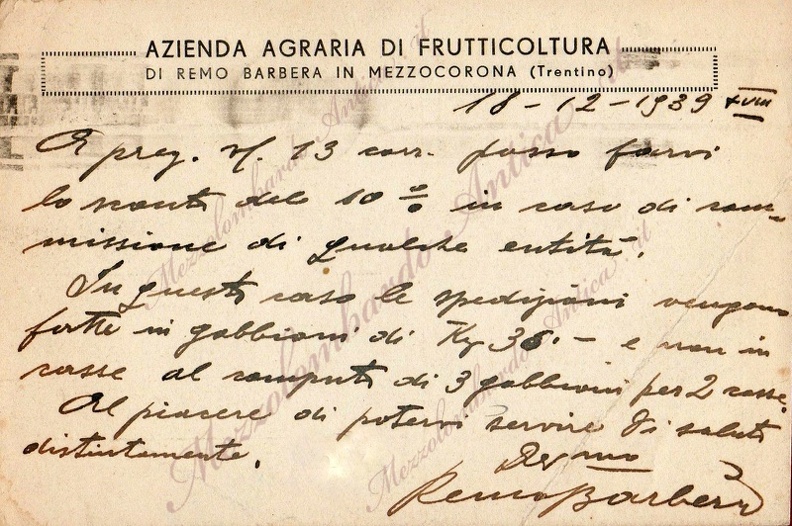 AZIENDA AGRARIA DI FRUTTICOLTURA
DI REMO BARBERA IN MEZZOCORONA (Trentino)
18-12-1939 XVIII
A preg. Vs. 13 corr. posso farvi
lo sconto del 10% in caso di com-
missione di qualche entità.
In questo caso le spedizioni vengono
fatte in gabbioni di Kg 36.- e non in
casse al computo di 3 gabbioni per 2 casse.
Al piacere di potervi servire Vi saluto
distintamente.
Dev mo
Remo Barbera
Mezzolombardo Antica .it
Mezzolombardo Antica .it
Mezzolombardo Antica .it